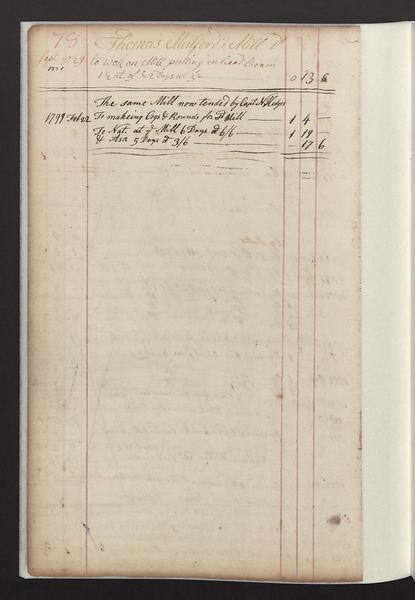 78 Thomas Mulford's Mill Dr
Sept ye 29 to work on Mill putting in head Beam
1 1/2 at 5/ & 2 Days at 3/ 0 13 6
The same Mill now tended by Capt N Hedges
1799 Feb 22 To makeing Cogs & Rounds for sd Mill 1 4 —
To Nat. at ye Mill 6 Days @ 6/6 — 1 19 —
& Asa 5 Days @ 3/6 — — 17 6